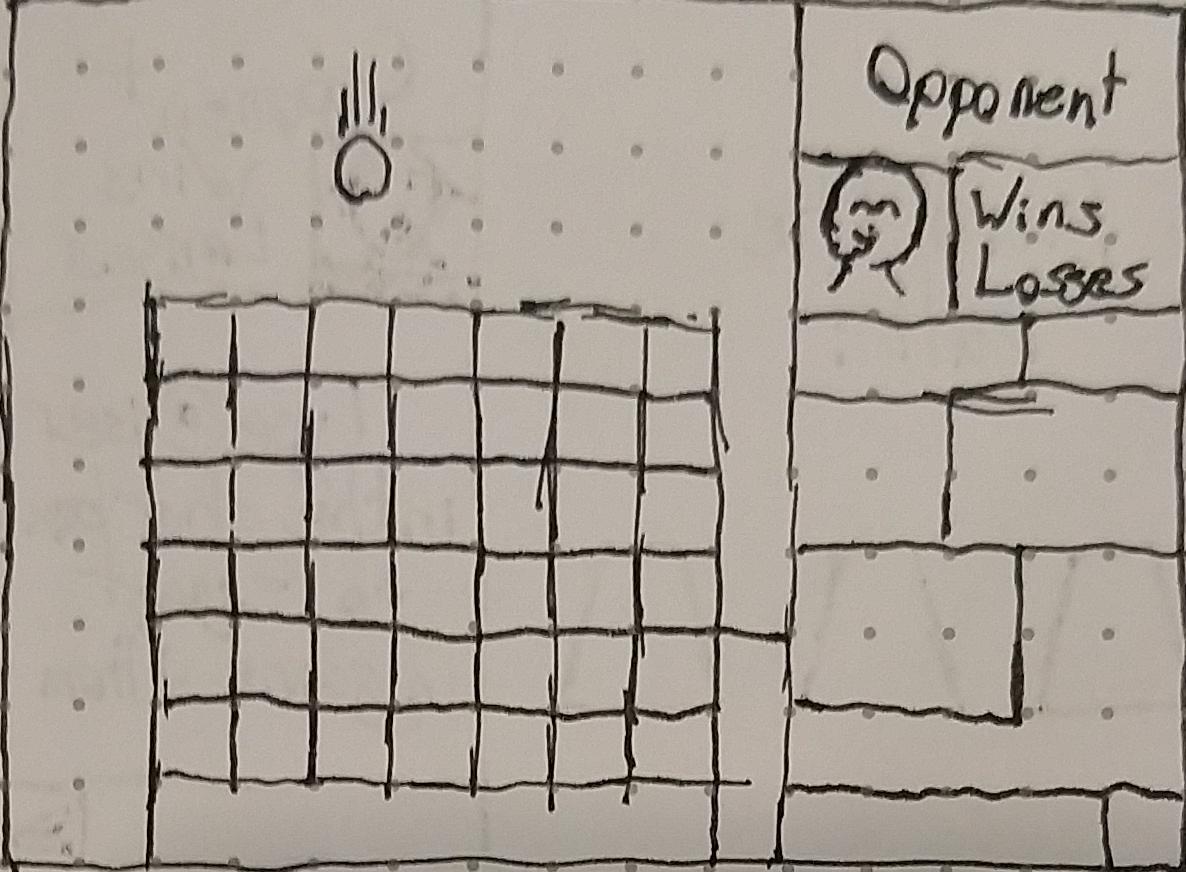 Opponent
Wins
Losses